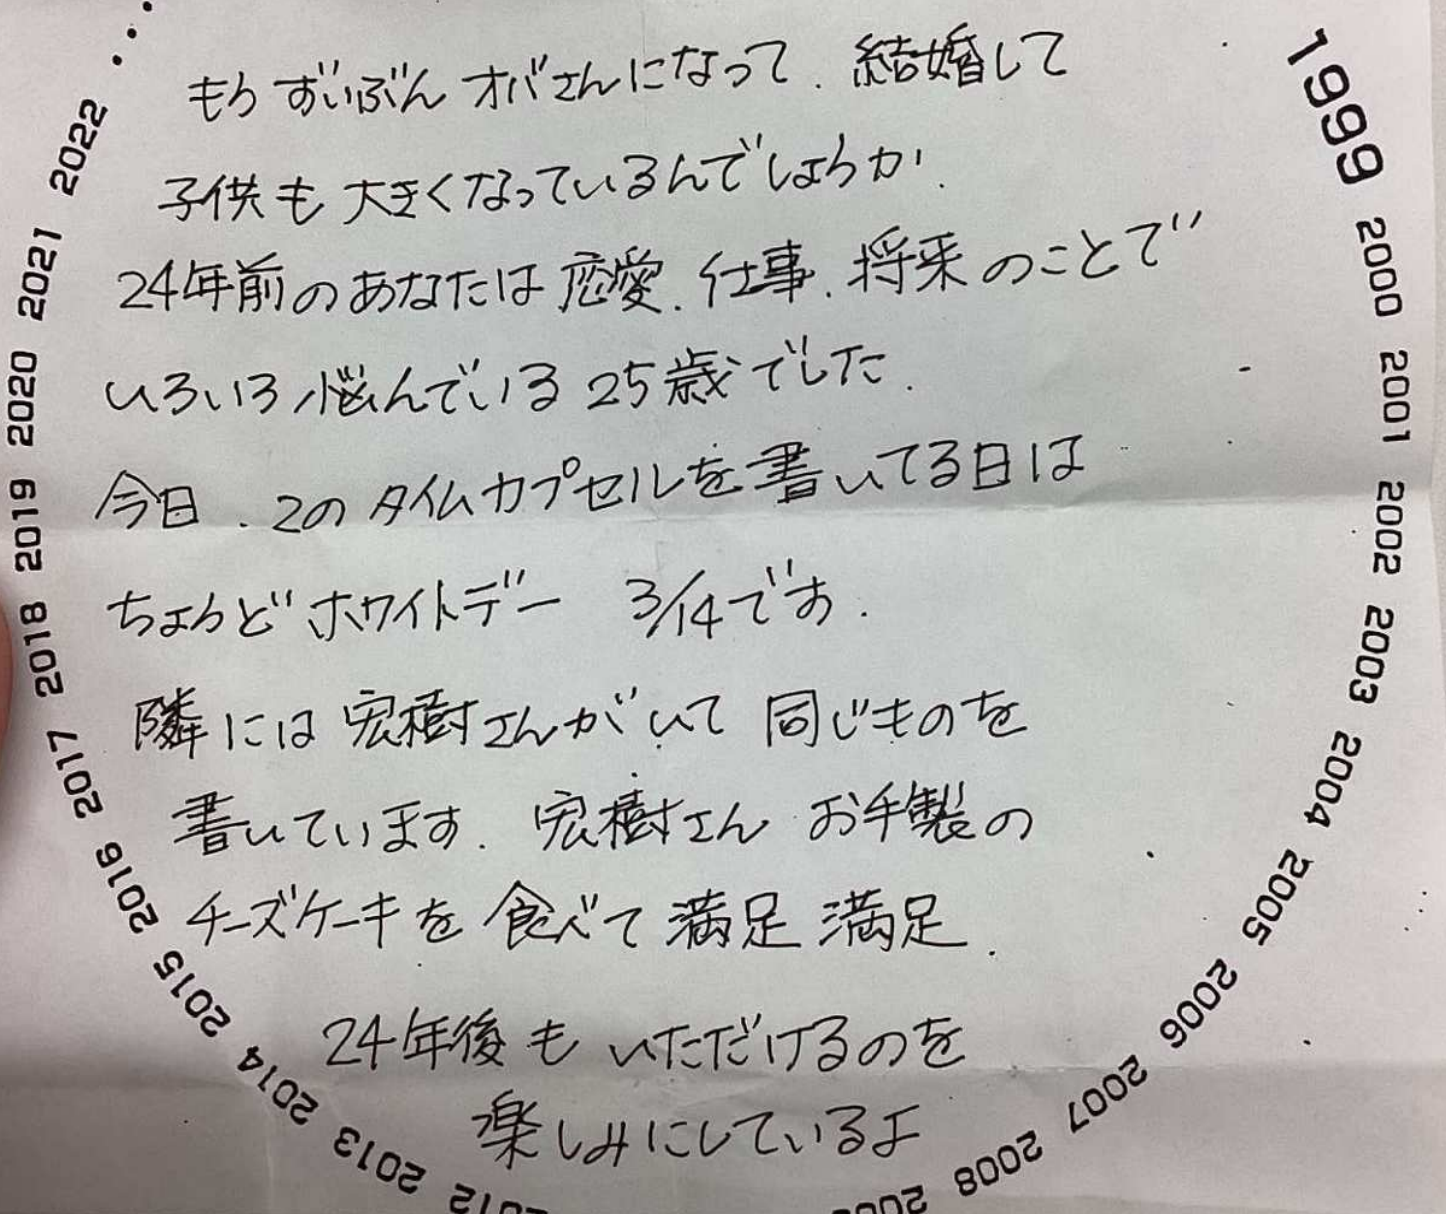 もうずいぶんオバさんになって．結婚して
子供も大きくなっているんでしょうか．
24年前のあなたは恋愛．仕事．将来のことで
いろいろ悩んでいる25歳でした．
今日．このタイムカプセルを書いてる日は
ちょうどホワイトデー 3/14です．
隣には宏樹さんがいて同じものを
書いています．宏樹さんお手製の
チーズケーキを食べて満足満足．
24年後もいただけるのを
楽しみにしているよ
1999
2000
2001
2002
2003
2004
2005
2006
2007
2008
2013
2014
2015
2016
2017
2018
2019
2020
2021
2022
...